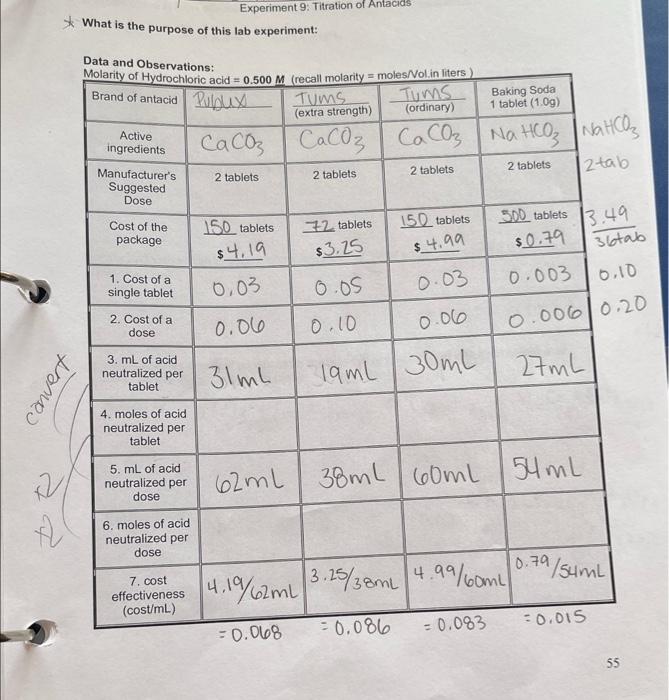 Experiment 9: Titration of Antacids
* What is the purpose of this lab experiment:
Data and Observations:
Molarity of Hydrochloric acid = 0.500 M (recall molarity = moles/Vol.in liters )
Brand of antacid Publix TUMS (extra strength) TUMS (ordinary) Baking Soda 1 tablet (1.0g)
Active ingredients CaCO3 CaCO3 CaCO3 NaHCO3 NaHCO3
Manufacturer's Suggested Dose 2 tablets 2 tablets 2 tablets 2 tablets 2 tab
Cost of the package 150 tablets $4.19 72 tablets $3.25 150 tablets $4.99 500 tablets $0.79 3.49/36tab
1. Cost of a single tablet 0.03 0.05 0.03 0.003 0.10
2. Cost of a dose 0.06 0.10 0.06 0.006 0.20
convert
3. mL of acid neutralized per tablet 31mL 19mL 30mL 27mL
4. moles of acid neutralized per tablet
x2
5. mL of acid neutralized per dose 62mL 38mL 60mL 54mL
x2
6. moles of acid neutralized per dose
7. cost effectiveness (cost/mL) 4.19/62mL 3.25/38mL 4.99/60mL 0.79/54mL
=0.068 =0.086 =0.083 =0.015
55